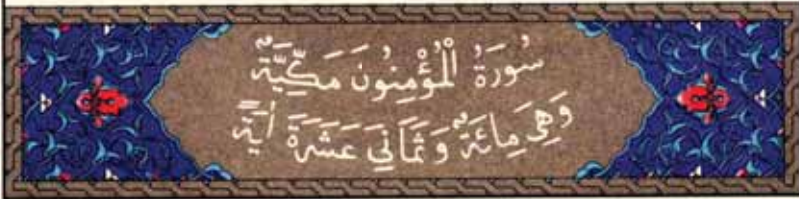 سُورَةُ الْمُؤْمِنُونَ مَكِّيَّةٌ
وَهِيَ مِائَةٌ وَثَمَانِيَ عَشَرَةَ أٰيَةً